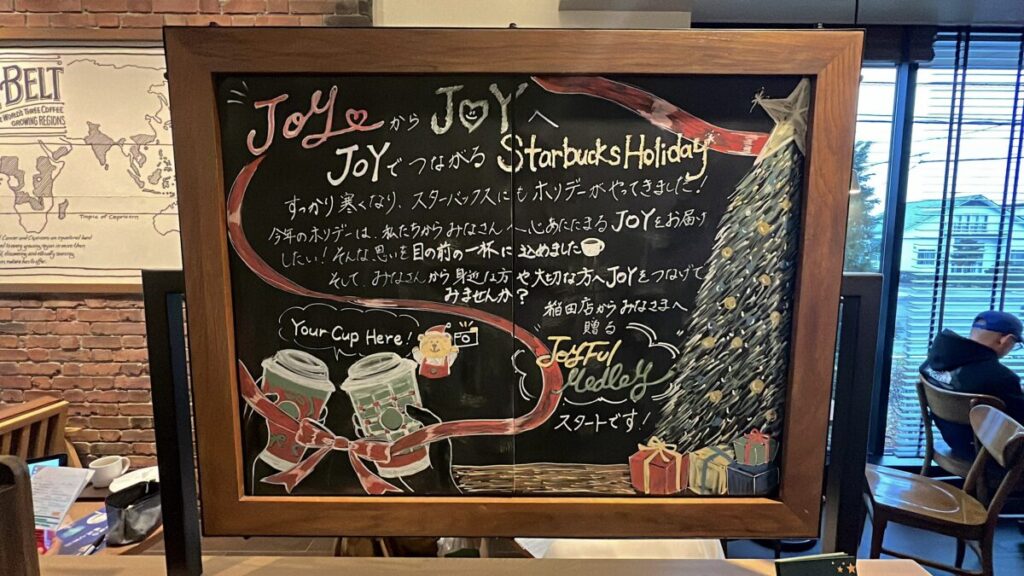 BELT
WORLD'S THREE COFFEE
GROWING REGIONS
Tropic of Capricorn
JOYから JOYへ
JOYでつながる Starbucks Holiday
すっかり寒くなり、スターバックスにもホリデーがやってきました！
今年のホリデーは、私たちからみなさんへ心あたたまるJOYをお届け
したい！そんな思いを目の前の一杯に込めました
そして、みなさんから身近な方や大切な方へJOYをつなげて
みませんか？
稲田店からみなさまへ
贈る
Your Cup Here!
JOYFUL
Medley
スタートです！